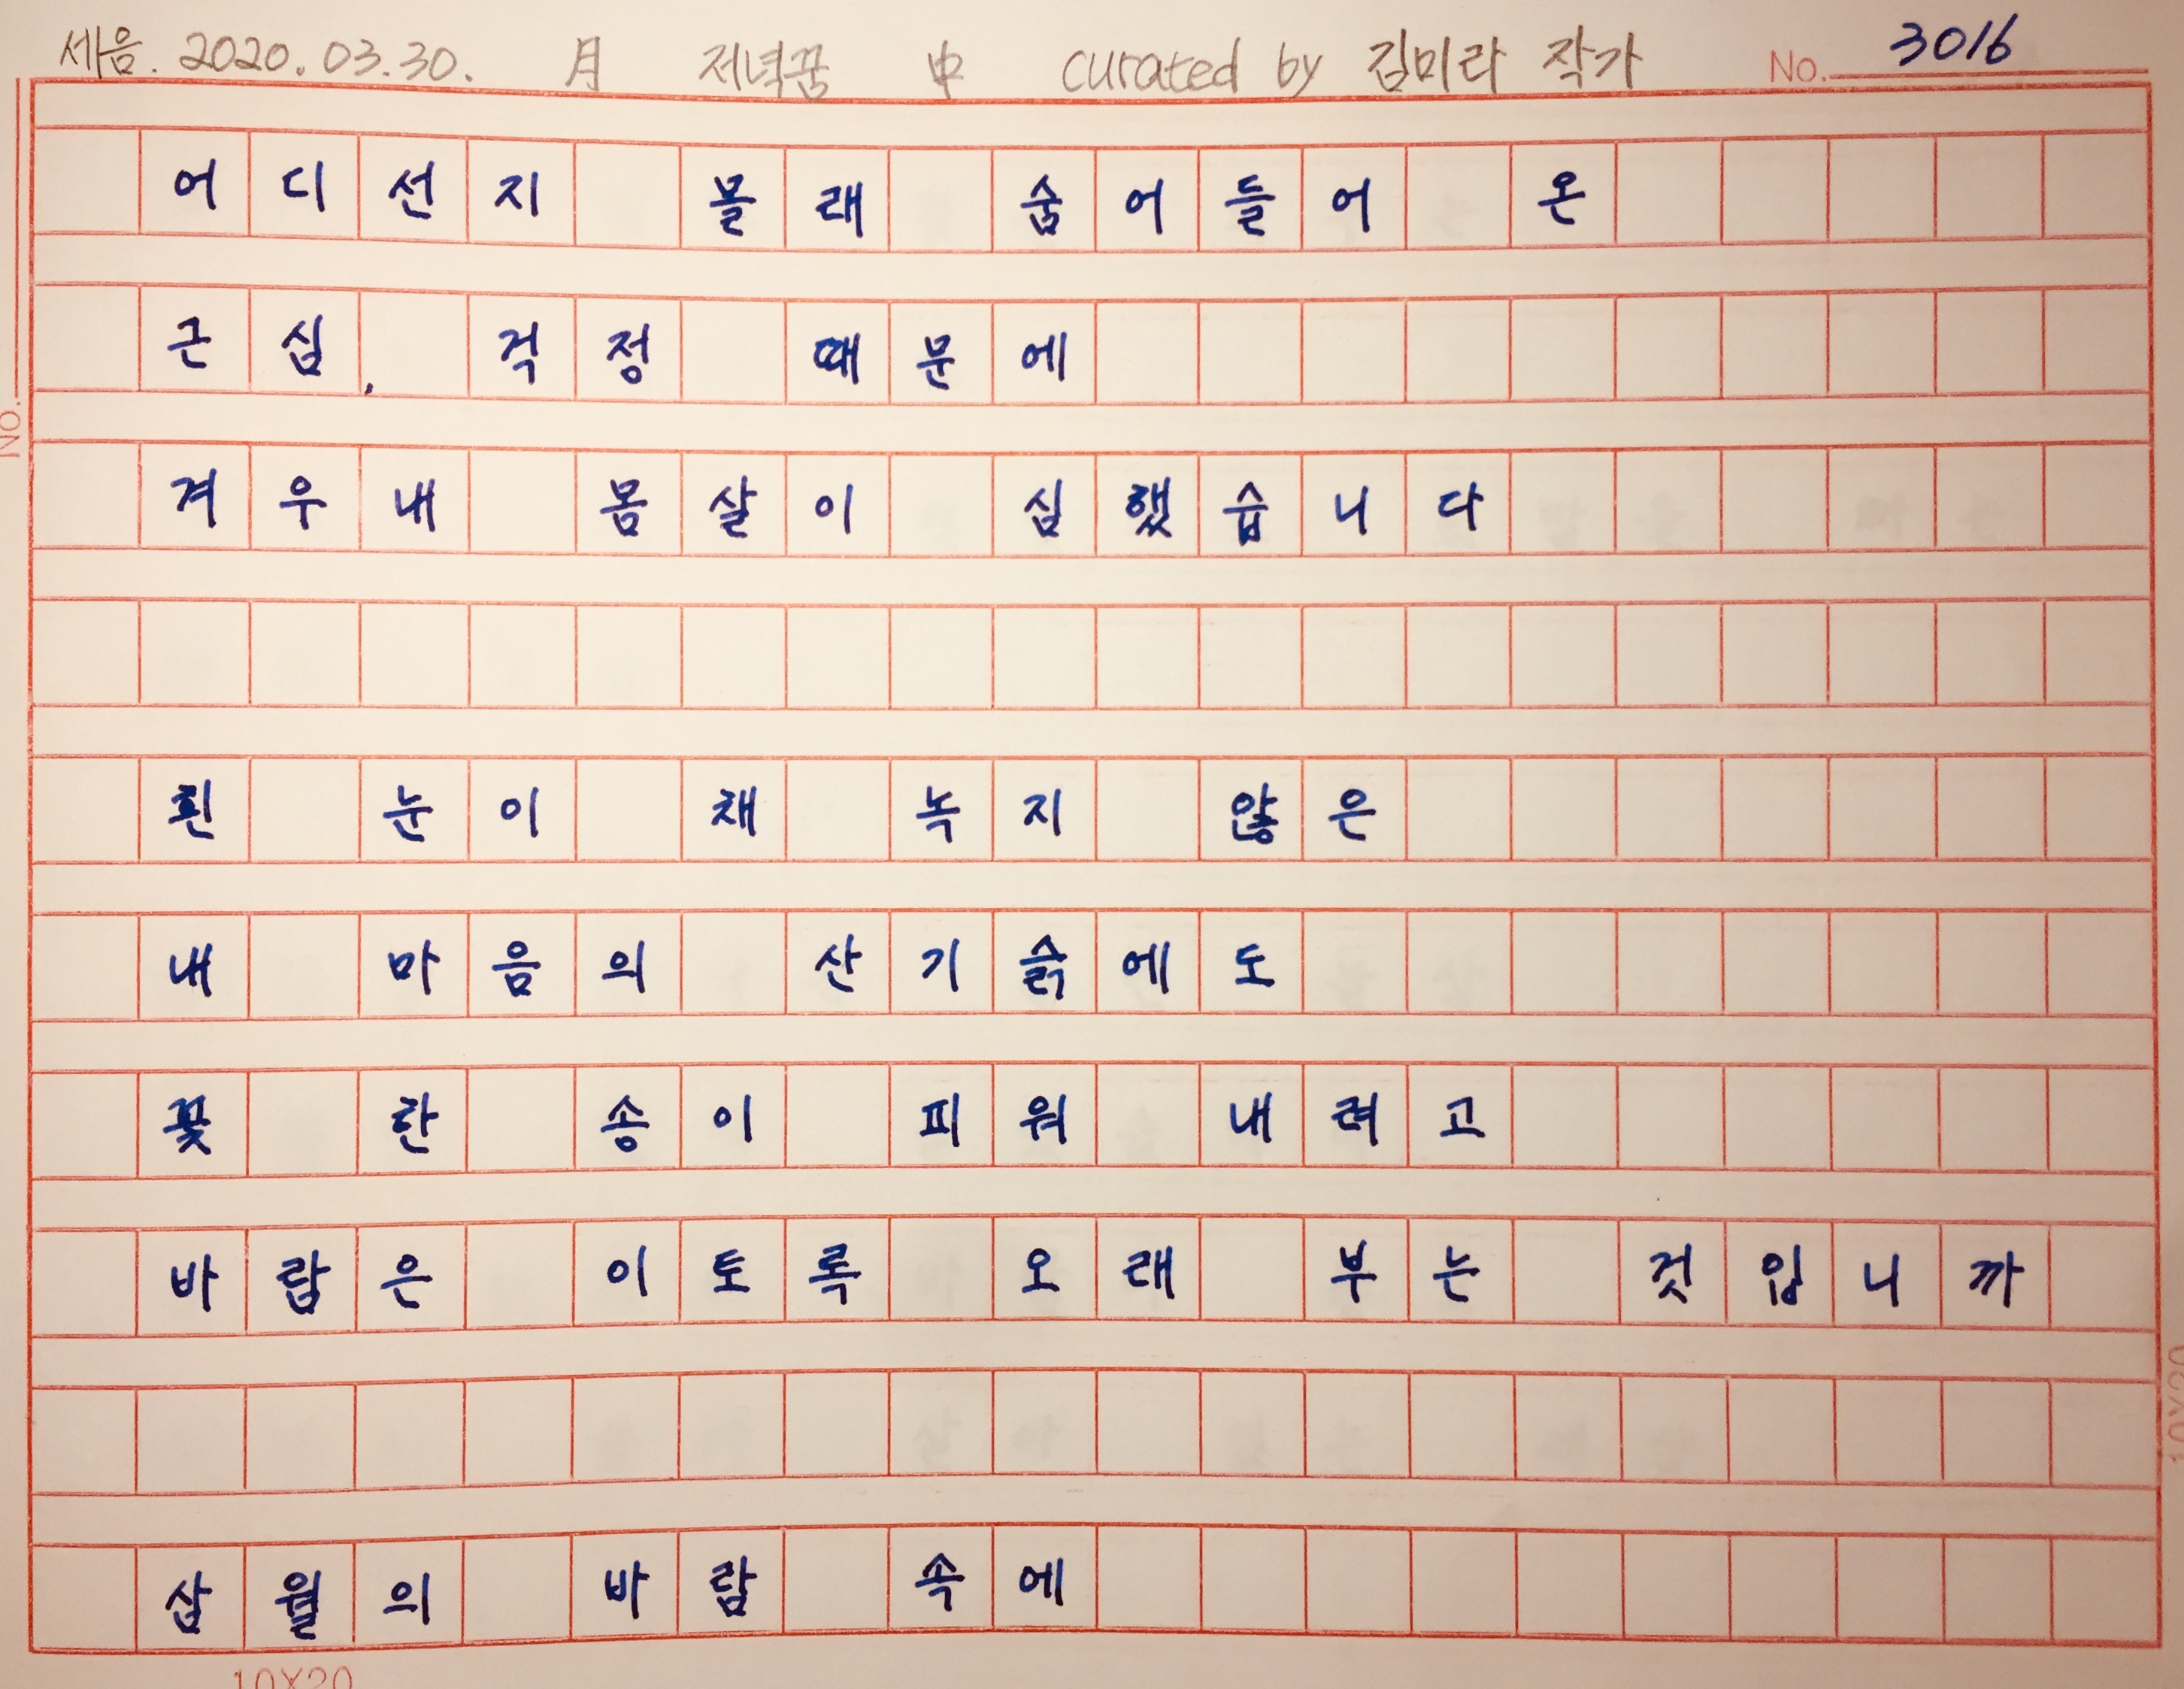 세음. 2020. 03. 30. 月 저녁꿈 中 curated by 김미라 작가 No. 3016
어디선지 몰래 숨어들어 온
근심, 걱정 때문에
겨우내 몸살이 심했습니다
흰 눈이 채 녹지 않은
내 마음의 산기슭에도
꽃 한 송이 피워 내려고
바람은 이토록 오래 부는 것입니까
삼월의 바람 속에
No.
10X20
10X20